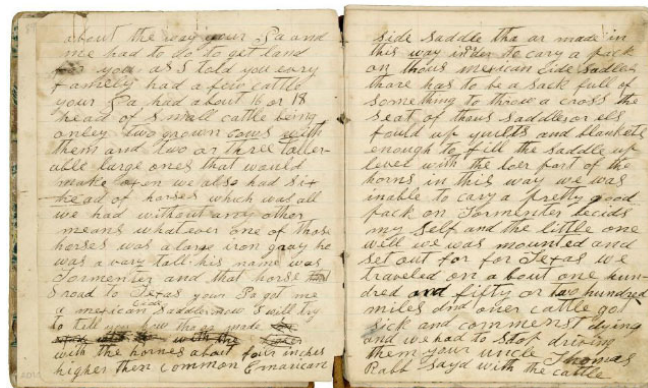 about the way your Pa and
me had to do to get land
for you as I told you evry
famiely had a few cattle
your Pa had about 16 or 18
head of small catle being
onley two grown cows with
them and two or three toller-
able large ones that would
make oxen we also had six
head of horses which was all
we had without any other
means whatever one of those
horses was a large iron gray he
was a vary tall his name was
Tormenter and that horse
I road to Texas your Pa got me
a mexican side Saddle now I will try
to tell you how thos made
with the
with the hornes about four inches
higher then common Emarican
side saddle tha ar made in
this way in order to cary a pack
on thous mexican side sadles
thare has to be a sack full of
something to throw a cross the
seat of thous saddles or els
fould up quilts and blankets
enough to fill the saddle up
level with the loer part of the
horns in this way we was
inable to cary a pretty good
pack on Tormenter becids
my self and the little one
well we was mounted and
set out for for Texas we
traveled on a bout one hun-
dred and fifty or two hundred
miles and over cattle got
sick and commenst dying
and we had to stop driving
them your uncle Thomas
Rabb sayd with the cattle